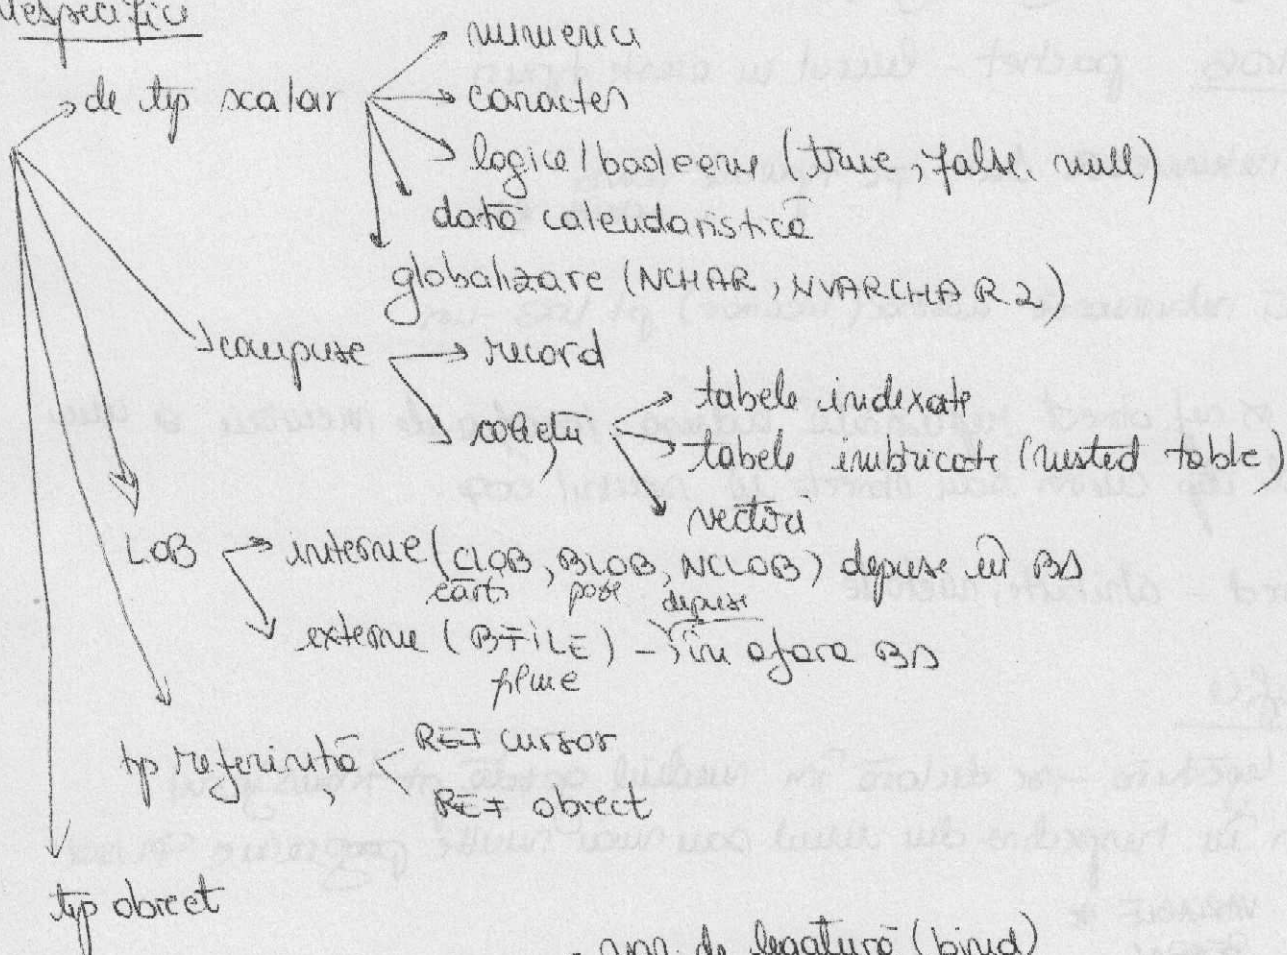 nespecifice
de tip scalar
numerici
caracter
logice/booleene (true, false, null)
dată calendaristică
globalizare (NCHAR, NVARCHAR2)
compuse
record
colecții
tabele indexate
tabele imbricate (nested table)
vectori
LOB
interne (CLOB, BLOB, NCLOB) depuse în BD
cărți poze
depuse
externe (BFILE) – în afara BD
filme
tip referință
REF cursor
REF obiect
tip obiect
var. de legătură (bind)